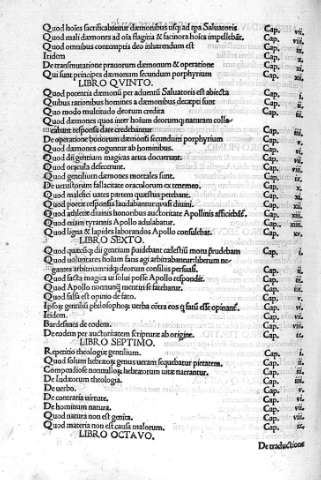 Quod hoíes sacrificabantur dæmonibus usq; ad tpa Saluatoris Cap. vii.
Quod mali dæmones ad oía flagitia & facinora hoíes impellebāt. Cap. viii.
Quod omnibus contemptis deo inhærendum est Cap. ix.
Itidem Cap. x.
De transmutatione prauorum dæmonum & operatione Cap. xi.
Qui sunt principes dæmonum secundum porphyrium Cap. xii.
LIBRO QVINTO.
Quod potentia dæmonū per aduentū Saluatoris est abiecta Cap. i.
Quibus rationibus homines a dæmonibus decepti sunt Cap. ii.
Quo modo multitudo deorum credita Cap.
Quod dæmones quos inter holum deorumq; naturam collo
cabunt responsa dare credebantur Cap. iii.
De operatione bonorum dæmonū secundum porphyrium Cap. v.
Quod dæmones coguntur ab hominibus. Cap. vi.
Quod dii gentium magicas artes docuerunt. Cap. vii.
Quod oracula desecerunt. Cap. viii.
Quod gentilium dæmones mortales sunt. Cap. ix.
De uersutorum fallacitate oraculorum ex œnomao. Cap. x.
Quod maledici uates patrem quasitus perebant. Cap. xi.
Quod poetæ responsis laudabantur quasi diuini. Cap. xii.
Quod athletæ diuinis honoribus auctoritate Apollinis afficiebāt. Cap. xiii.
Quod etiam tyrannis Apollo adulabatur. Cap. xiiii.
Quod ligna & lapides laborandos Apollo consulebat. Cap. xv.
LIBRO SEXTO.
Quod quæcūq; dii gentium prædebant cælestiū motu prædebant Cap. i.
Quod uoluntates hoīum fatis agi arbitrabantur liberum ne-
gantes arbitrium idq; deorum consiliis persuasi. Cap. ii.
Quod facta magica ui solui posse Apollo respondit. Cap. iii.
Quod Apollo nonnunq; mentiri se fatebatur. Cap.
Quod falsa est opinio de fato. Cap. v.
Ipsoq; gentiliū philosophoq; uerba cōtra eos q̄ fatū esse opinanr̄. Cap. vi.
Itidem. Cap. vii.
Bardesanes de eodem. Cap.
De eodem per auctoritatem scripturæ ab origine. Cap.
LIBRO SEPTIMO.
Repetitio theologiæ gentilium. Cap. i.
Quod solum hebræoq; genus ueram sequebatur pietatem. Cap. ii.
Compendiose nonnulloq; hebræorum uitæ narrantur. Cap. iii.
De Iudæorum theologia. Cap.
De uerbo. Cap. v.
De contraria uirtute. Cap. vi.
De hominum natura. Cap.
Quod natura non est genita. Cap.
Quod materia non est causa malorum. Cap.
LIBRO OCTAVO.
De traductione